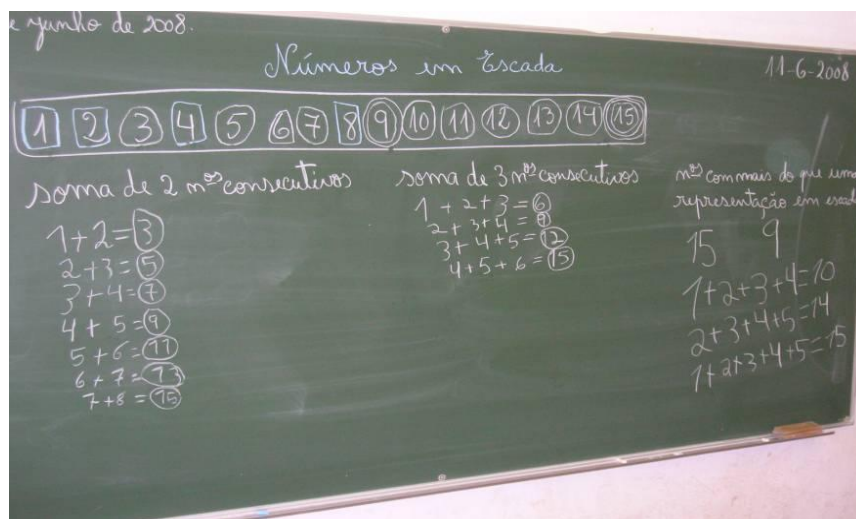 e junho de 2008.
11-6-2008
Números em Escada
1 2 3 4 5 6 7 8 9 10 11 12 13 14 15
soma de 2 nºs consecutivos
1+2=3
2+3=5
3+4=7
4+5=9
5+6=11
6+7=13
7+8=15
soma de 3 nºs consecutivos
1+2+3=6
2+3+4=9
3+4+5=12
4+5+6=15
nºs com mais do que uma
representação em escada
15 9
1+2+3+4=10
2+3+4+5=14
1+2+3+4+5=15